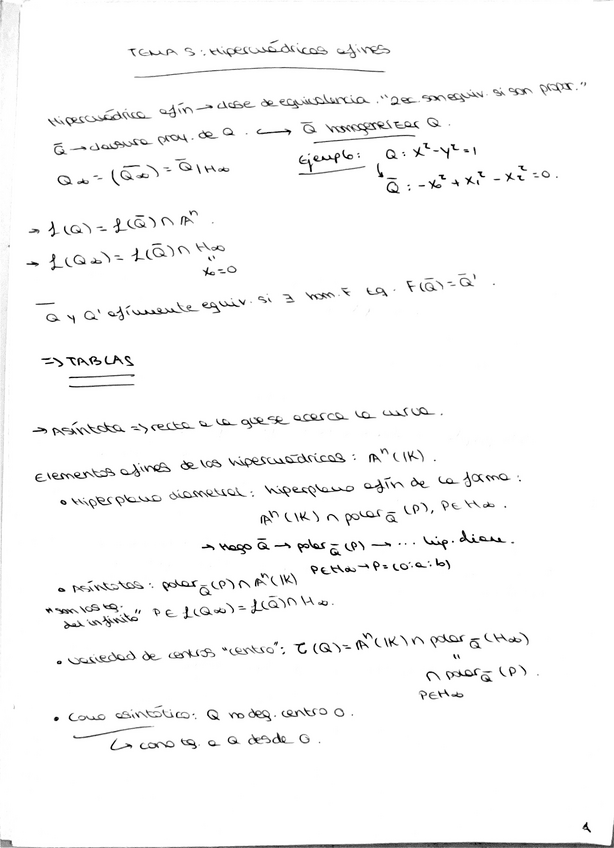 TEMA 5: Hipercuádricas afines
Hipercuádrica afín → clase de equivalencia. "2 ec. son equiv. si son propor."
Q̄ → clausura proy. de Q. ⟷ Q̄ homogeneizar Q.
Q∞ = (Q̄∞) = Q̄|H∞
Ejemplo: Q: x²-y²=1
↳ Q̄: -x₀²+x₁²-x₂²=0.
→ L(Q) = L(Q̄) ∩ Aⁿ.
→ L(Q∞) = L(Q̄) ∩ H∞
"
x₀=0
Q y Q' afínmente equiv. si ∃ hom. F tq. F(Q̄)=Q̄'.
⇒ TABLAS
→ Asíntota ⇒ recta a la que se acerca la curva.
Elementos afines de las hipercuádricas: Aⁿ(K).
• Hiperplano diametral: hiperplano afín de la forma:
Aⁿ(K) ∩ polar Q̄ (P), P∈H∞.
→ Hago Q̄ → polar Q̄ (P) → ... hip. diam.
P∈H∞ → P=(0:a:b)
• Asíntotas: polar Q̄ (P) ∩ Aⁿ(K)
"son las tg. del infinito" P∈ L(Q∞) = L(Q̄) ∩ H∞.
• Variedad de centros "centro": τ(Q) = Aⁿ(K) ∩ polar Q̄ (H∞)
"
∩ polar Q̄ (P).
P∈H∞
• Cono asintótico: Q no deg. centro O.
↳ cono tg. a Q desde O.
1